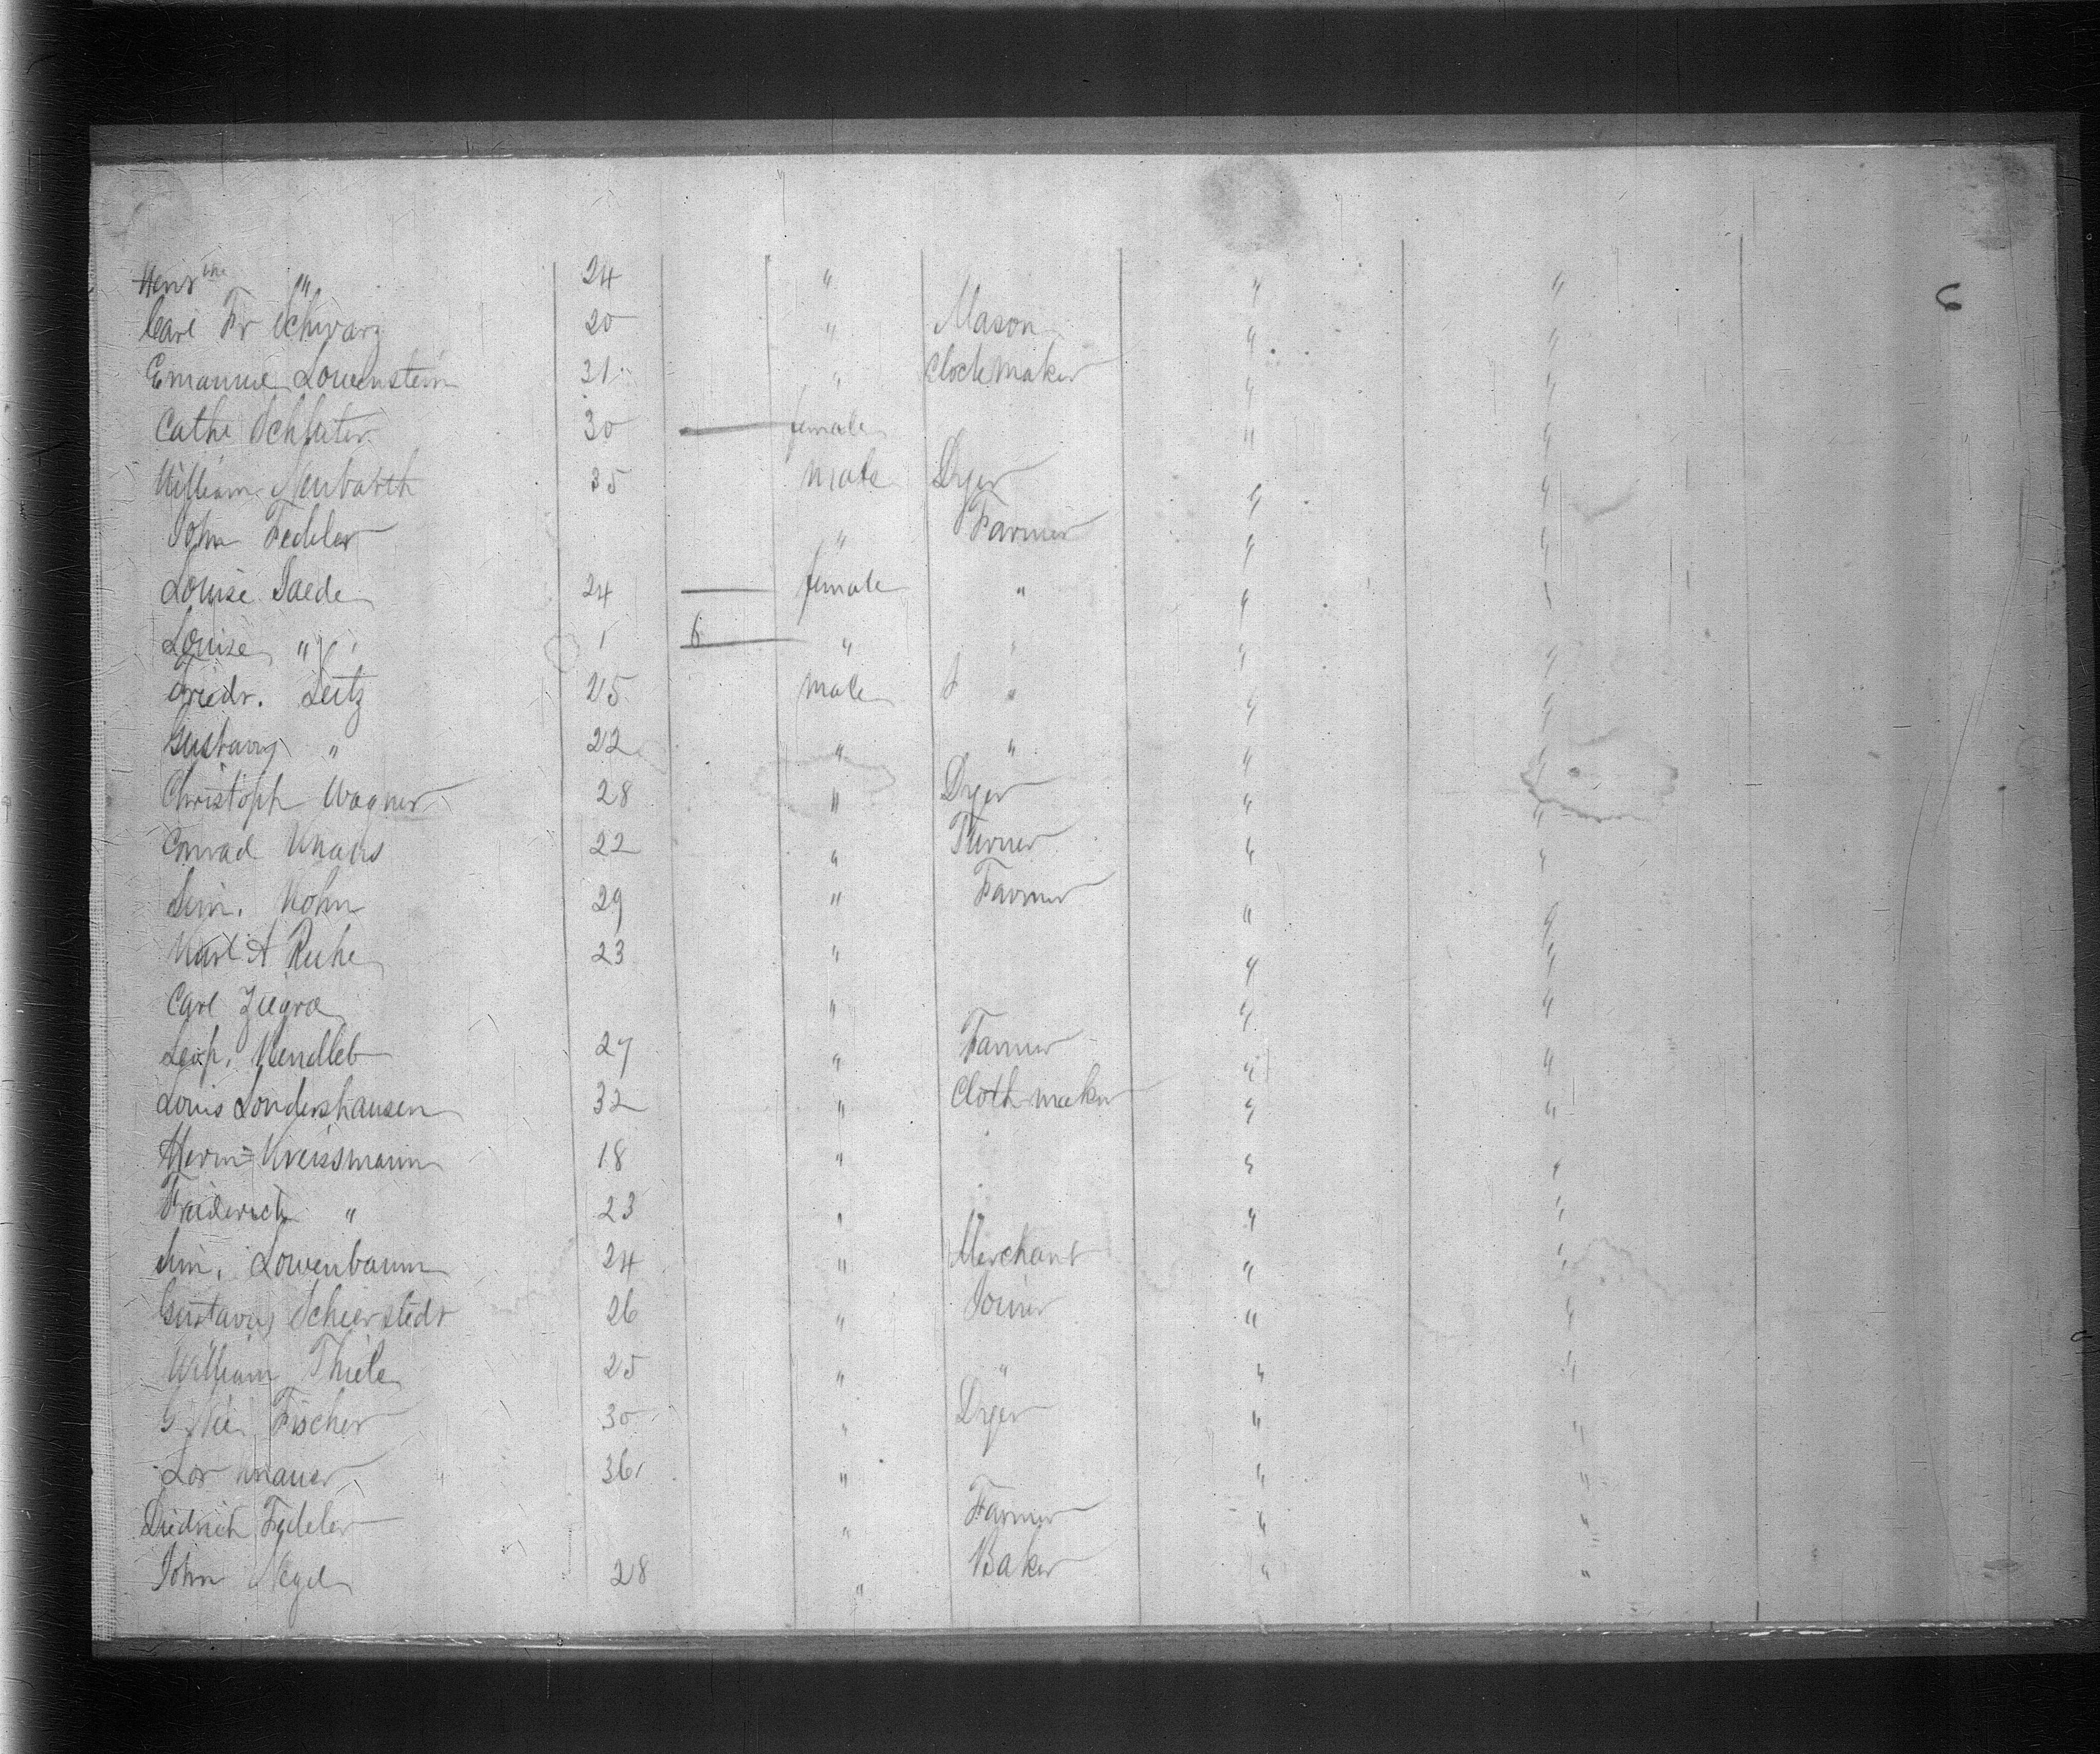 Heinr " 24 " " "
6
Carl Fr Schwarz 20 " Mason " "
Emanuel Lowenstein 31 " Clockmaker " "
Cathe Schluter 30 — female " "
William Neubarth 35 male Dyer " "
John Fedeler " Farmer " "
Louise Saede 24 — female " " "
Louise " 1 6 " " " "
Friedr. Leitz 25 male " " "
Gustavus " 22 " " " "
Christoph Wagner 28 " Dyer " "
Conrad 22 " Turner " "
Sim. Kohn 29 " Farmer " "
Karl A Ruhe 23 " " "
Carl " " "
Leop. 27 " Farmer " "
Louis Sondershausen 32 " Cloth maker " "
Herm= Kreissmann 18 " " "
Freiderich " 23 " " "
Sim. Lowenbaum 24 " Merchant " "
Gustavus Schierstedt 26 " Joiner " "
William Thiele 25 " " " "
Fischer 30 " Dyer " "
Knauer 36 " " "
Diedrich Fedeler " Farmer " "
John 28 " Baker " "